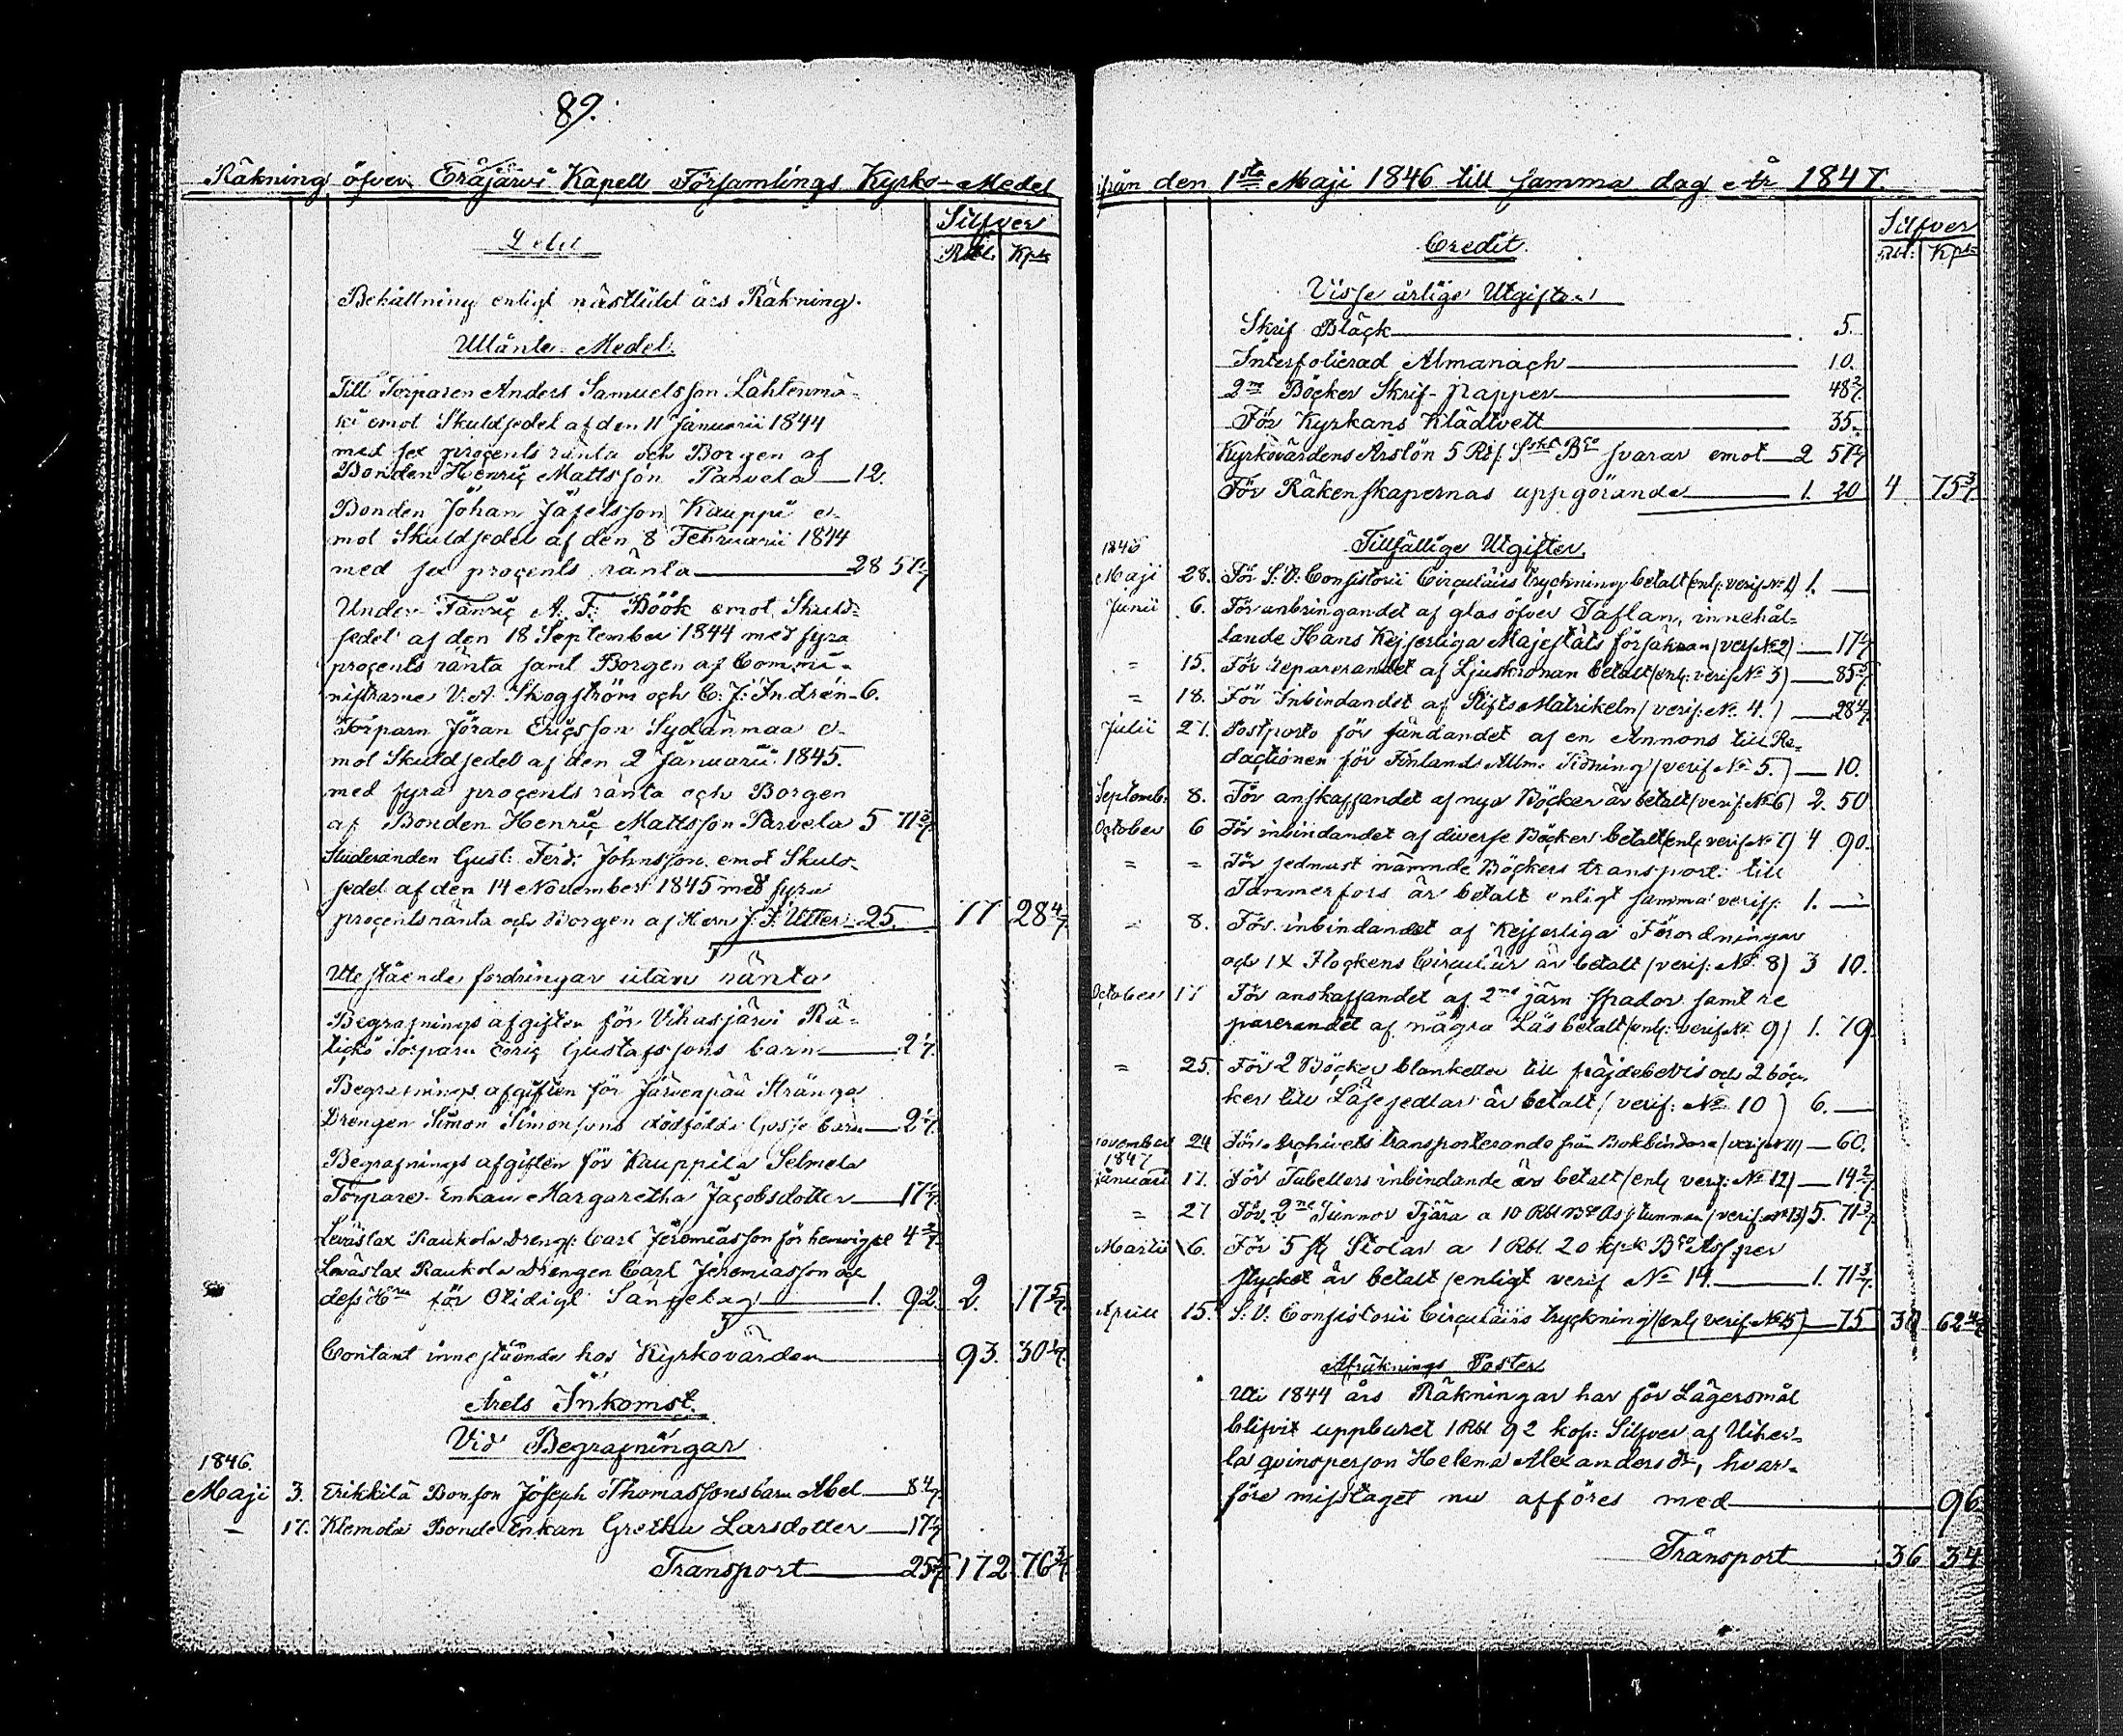 89.
Räkning öfver Eräjärvi Kapell Församlings Kyrko-Medel
Silfver
Rbl. Kpk
Debet
Behållning enligt nästledet års Räkning.
Utlånte Medel.
Till Torparen Anders Samuelsson Lahtenmä-
ki emot Skuldsedel af den 11 Januarii 1844
med sex procents ränta och Borgen af
Bonden Henric Mattsson Parvela 12.
Bonden Johan Josefsson Kauppi e-
mot Skuldsedel af den 8 Februarii 1844
med sex procents ränta 28 57 1/7
Under-Fänric A. F. Böök emot Skuld-
sedel af den 18 September 1844 med fyra
procents ränta samt Borgen af Commi-
nistrarne V. A. Skogström och C. J. Indrén 6.
Torparn Jöran Ericsson Sydänmaa e-
mot Skuldsedel af den 2 Januarii 1845.
med fyra procents ränta och Borgen
af Bonden Henric Mattsson Parvela 5 71 3/7
Studeranden Gust: Ferd: Johnsson emot Skuld-
sedel af den 14 November 1845 med fyra
procents ränta och Borgen af Herr J. F. Utter 25. 77 28 4/7
Utestående fordringar utan ränta
Begrafnings afgiften för Vihasjärvi
Torparn Eric Gustafssons barn 2 1/7
Begrafnings afgiften för Järvenpää Stränga
Drengen Simon Simonssons dödfödda barn 2 1/7
Begrafnings afgiften för Kauppila Selmela
Torpare Enkan Margaretha Jacobsdotter 17 1/7
Leväslax Raukola Dreng: Carl Jeremiasson för 4 2/7
Leväslax Raukola Drengen Carl Jeremiasson och
dess Hru för Otidigt Sängelag 1. 92. 2. 17 5/7
Contant innestående hos Kyrkovärden 93. 30 1/7
Årets Inkomst.
Vid Begrafningar
1846.
Maji 3. Erikkilä Bonson Joseph Thomassons barn Abel 8 4/7
— 17. Klemola Bonde Enkan Gretha Larsdotter 17 1/7
Transport 25 5/7 172 76 3/7
ifrån den 1sta Maji 1846 till samma dag År 1847.
Silfver
Rbl: Kpk
Credit.
Visse årlige Utgifter
Skrif Bläck 5.
Interfolierad Almanach 10.
2ne Böcker Skrif-papper 48 2/7
För Kyrkans Klädtvett 35.
Kyrkovärdens Årslön 5 Rbl Bco svarar emot 2 57 1/7
För Räkenskapernas uppgörande 1. 20 4 75 3/7
1846 Tillfällige Utgifter.
Maji 28. För S: V: Consistorii Circulairs tryckning betalt (enl: verif No 1) 1. —
Junii 6. För anbringandet af glas öfver Taflan, innehål-
lande Hans Kejserliga Majestäts försäkran (verif No 2) 17 1/7
= 15. För reparerandet af Ljuskronan betalt (enl: verif No 3) 85 5/7
= 18. För Inbindandet af Stifts Matrikeln (verif: No 4.) 28 4/7
Julii 27. Postporto för sändandet af en Annons till Re-
dactionen för Finlands Allm: Tidning (verif No 5.) 10.
Septemb: 8. För anskaffandet af nya Böcker är betalt (verif: No 6) 2. 50
October 6 För inbindandet af diverse Böcker betalt (enl verif No 7) 4 90.
= = För sednast nämnde Böckers transport till
Tammerfors är betalt enligt samma verif: 1. —
= 8. För inbindandet af Kejserliga Förordningar
och IX Flockens Circulär är betalt (verif: No 8) 3 10.
October 17 För anskaffandet af 2ne järn spador samt re
parerandet af några Lås betalt (enl: verif: No 9) 1. 79
= 25. För 2 Böcker blanketter till fräjdebevis och 2 böc-
ker till Läsesedlar är betalt (verif: No 10) 6. —
November 24 För Archivets transporterande från Bokbindare (verif No 11) 60.
1847
Januari 17. För Tabellers inbindande är betalt (enl verif: No 12) 14 2/7
= 27 För 2ne Tunnor Tjära a 10 Rbl Bco Ass tunnan (verif: No 13) 5. 71 3/7
Martii 6. För 5 st Stolar a 1 Rbl. 20 kpk Bco Ass per
stycket är betalt enligt verif No 14. 1. 71 3/7
Aprill 15. S: V: Consistorii Circulairs tryckning (enl verif No 15) 75 30 62 4/7
Afräknings Poster
Uti 1844 års Räkningar har för Lägersmål
blifvit uppburet 1 Rbl 92 kop: Silfver af Uiher-
la qvinsperson Helena Alexanders dr, hvar-
före misstaget nu afföres med 96
Transport 36 34